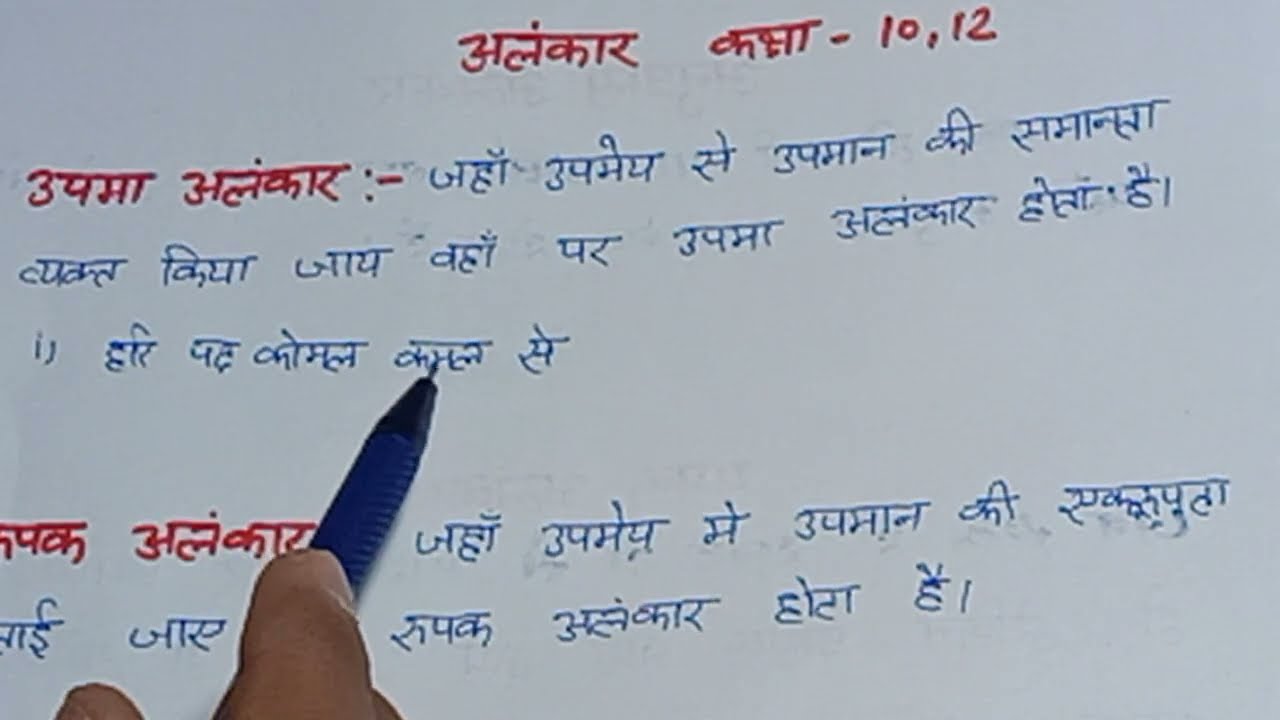 अलंकार कक्षा - 10, 12
उपमा अलंकार :- जहाँ उपमेय से उपमान की समानता
व्यक्त किया जाय वहाँ पर उपमा अलंकार होता है।
i) हरि पद कोमल कमल से
रुपक अलंकार जहाँ उपमेय मे उपमान की एकरूपता
जाए रुपक अलंकार होता है।